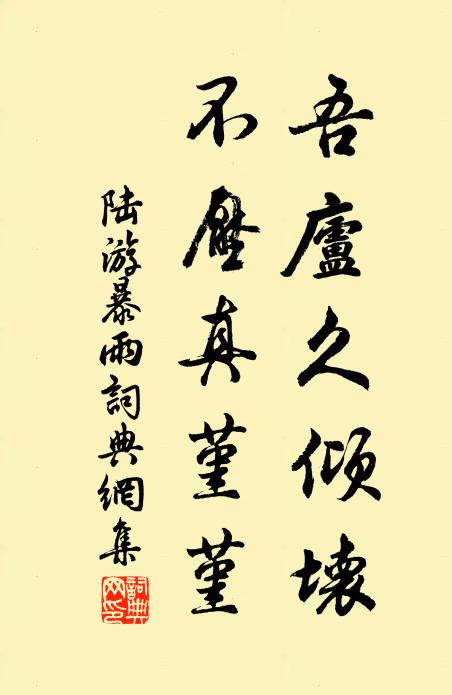 吾廬久傾壞
不壓真堇堇
陆游暴雨詞典網集
詞典網印